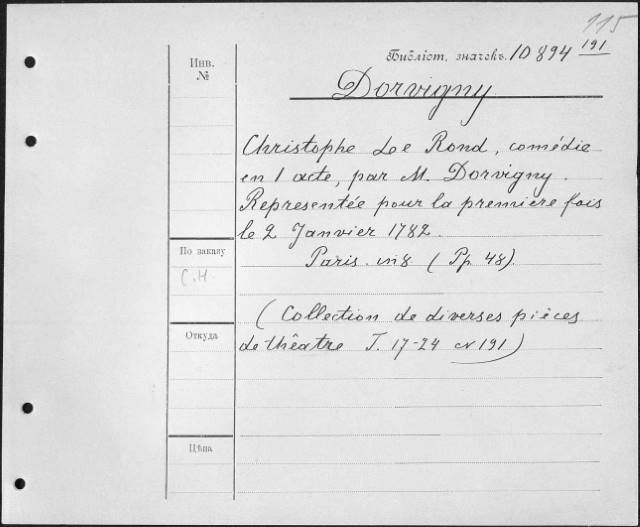 115
Библіот. значекъ. 10894 191
Инв.
№
Dorvigny
Christophe Le Rond, comédie
en 1 acte, par M. Dorvigny.
Representée pour la première fois
le 2 Janvier 1782.
По заказу
С.Н
Paris. in8 (Pp. 48).
(Collection de diverses pièces
Откуда
de théatre T. 17-24 № 191)
Цѣна